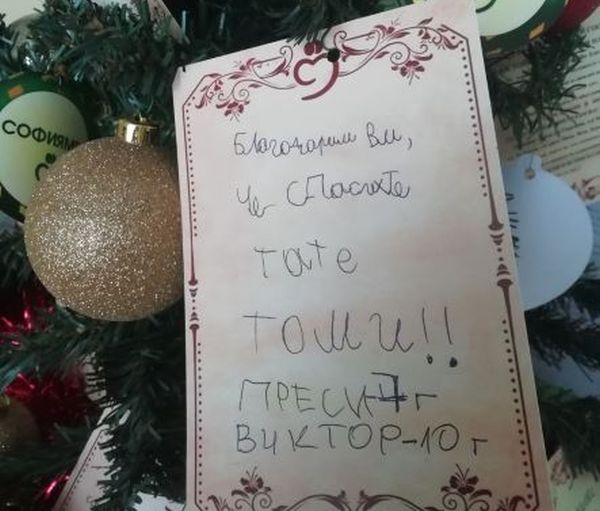 СОФИЯМЕД
Благодарим Ви,
Че СПасихТе
Тате
ТОМИ!!
ПРЕСИ-7г
ВИКТОР-10г